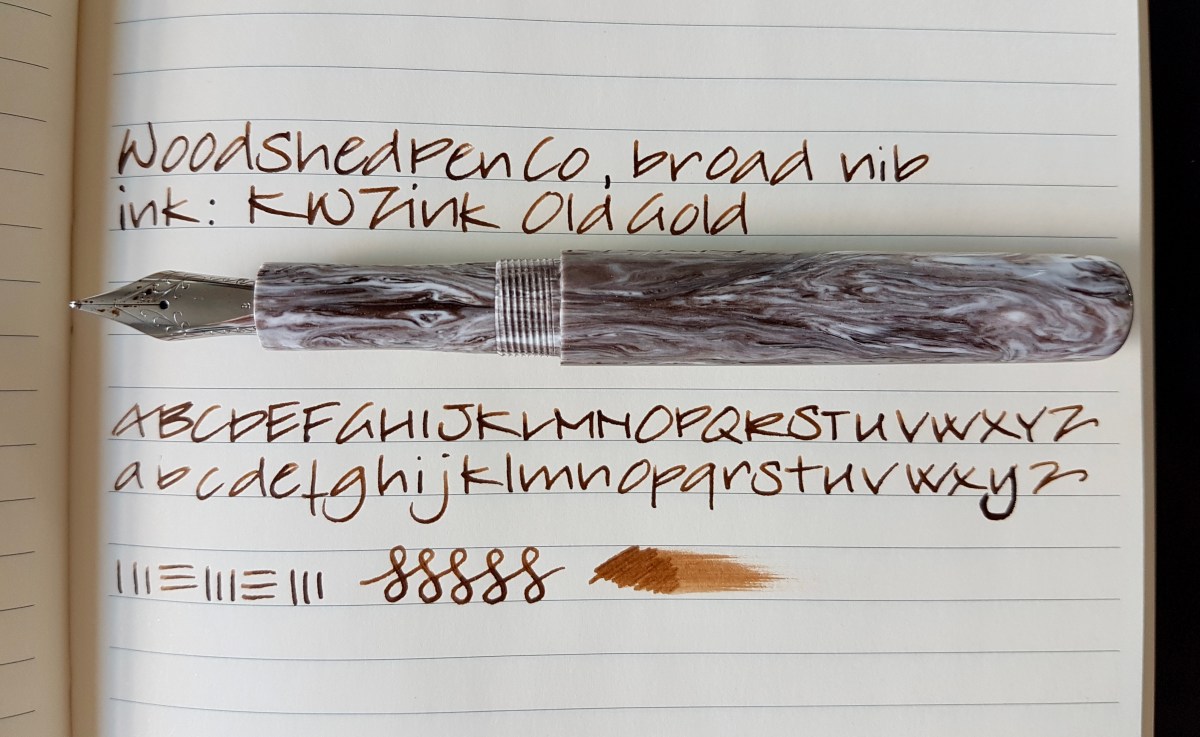 WoodshedPenCo, broad nib
ink: KWZink Old Gold
ABCDEFGHIJKLMNOPQRSTUVWXYZ
abcdefghijklmnopqrstuvwxyz